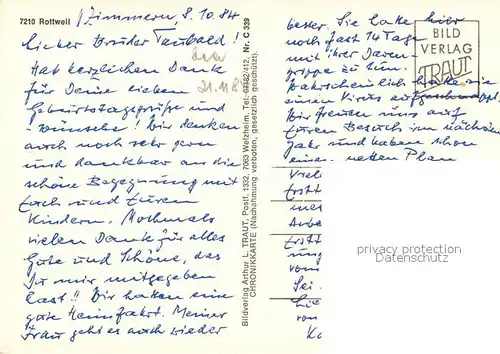 7210 Rottweil
Zimmern, 8.10.84
Lieber Bruder Taubald!
Hab herzlichen Dank
für Deine lieben
Geburtstagsgrüße und
-wünsche! Wir denken
auch noch sehr gern
und dankbar an die
schöne Begegnung mit
Euch und Euren
Kindern. Nochmals
vielen Dank für alles
Gute und Schöne, das
Du mir mitgegeben
hast!! Wir hatten eine
gute Heimfahrt. Meiner
Frau geht es auch wieder
Bildverlag Arthur L. TRAUT, Postf. 1332, 7063 Welzheim, Tel: 07182/412, Nr. C 339
CHRONIKKARTE (Nachahmung verboten, gesetzlich geschützt).
besser. Sie hatte hier
noch fast 14 Tage
mit ihrer Darm-
grippe zu tun.
Wahrscheinlich hatte sie
einen Virus aufgeschnappt.
Wir freuen uns auf
Euren Besuch im nächsten
Jahr und haben schon
einen netten Plan
BILD
VERLAG
TRAUT
privacy protection
Datenschutz